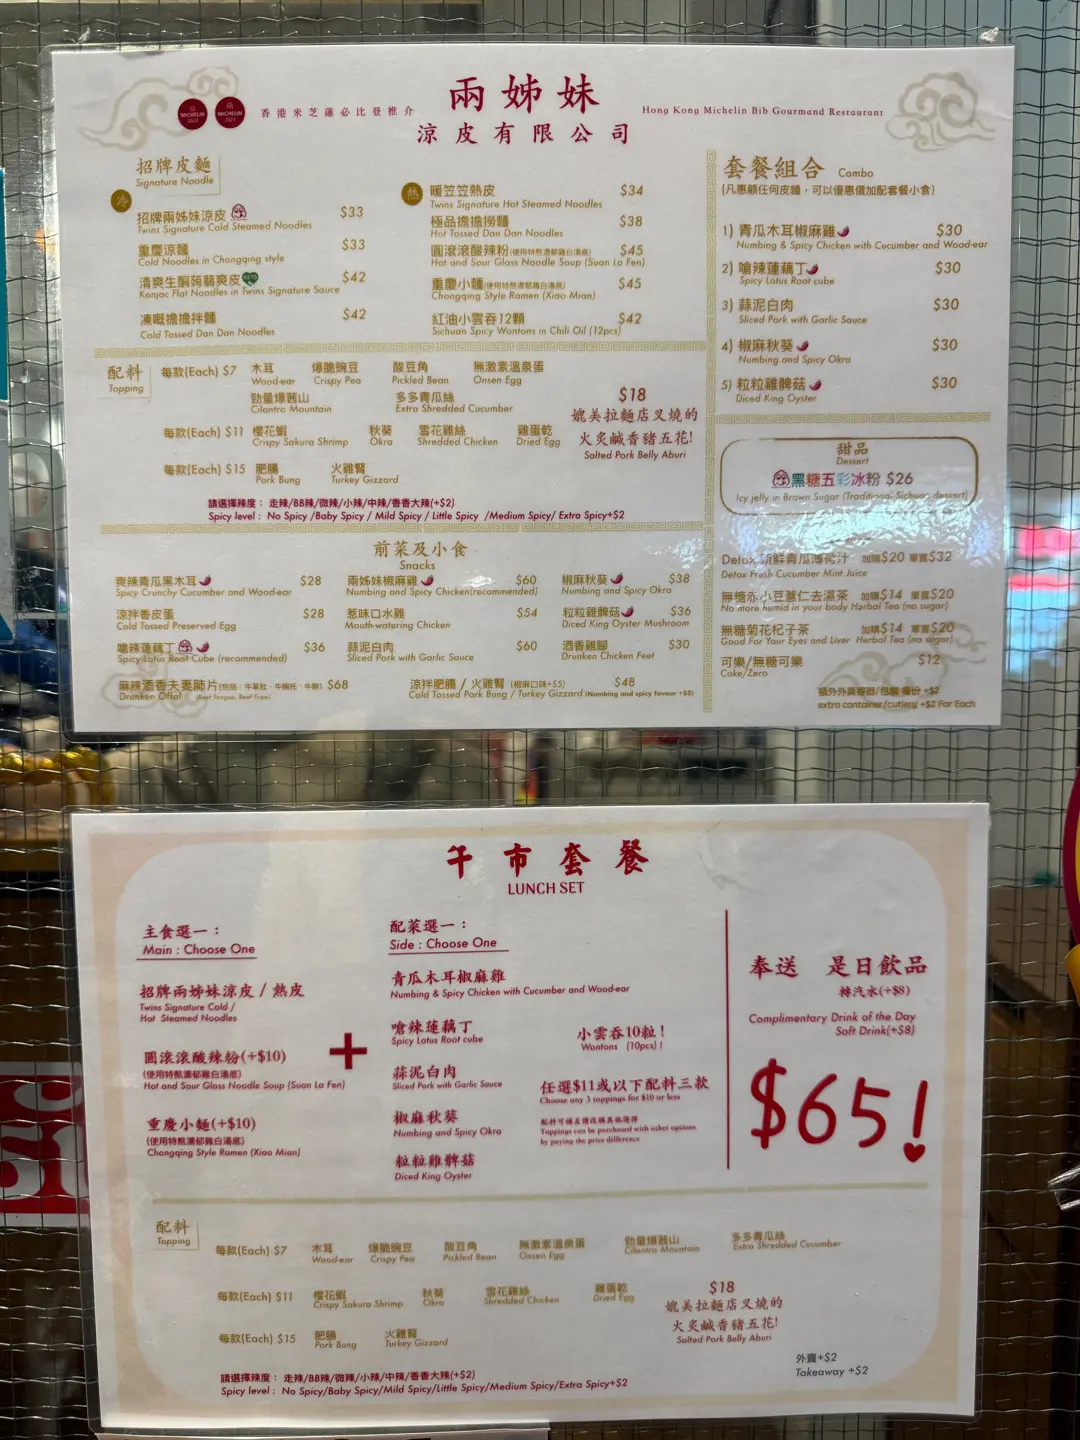 兩姊妹
涼皮有限公司
MICHELIN
MICHELIN
香港米芝蓮必比登推介
Hong Kong Michelin Bib Gourmand Restaurant
招牌皮麵
Signature Noodle
冷
招牌兩姊妹涼皮 $33
Twins Signature Cold Steamed Noodles
重慶涼麵 $33
Cold Noodles in Chongqing style
清爽生酮蒟蒻爽皮 KETO $42
Konjac Flat Noodles in Twins Signature Sauce
凍嘅擔擔拌麵 $42
Cold Tossed Dan Dan Noodles
熱
暖笠笠熱皮 $34
Twins Signature Hot Steamed Noodles
極品擔擔撈麵 $38
Hot Tossed Dan Dan Noodles
圓滾滾酸辣粉(使用特熬濃郁雞白湯底) $45
Hot and Sour Glass Noodle Soup (Suan La Fen)
重慶小麵(使用特熬濃郁雞白湯底) $45
Chongqing Style Ramen (Xiao Mian)
紅油小雲吞12顆 $42
Sichuan Spicy Wontons in Chili Oil (12pcs)
配料
Topping
每款(Each) $7 木耳 爆脆豌豆 酸豆角 無激素溫泉蛋
Wood-ear Crispy Pea Pickled Bean Onsen Egg
勁量爆茜山 多多青瓜絲
Cilantro Mountain Extra Shredded Cucumber
每款(Each) $11 櫻花蝦 秋葵 雪花雞絲 雞蛋乾
Crispy Sakura Shrimp Okra Shredded Chicken Dried Egg
每款(Each) $15 肥腸 火雞腎
Pork Bung Turkey Gizzard
$18
媲美拉麵店叉燒的
火炙鹹香豬五花!
Salted Pork Belly Aburi
請選擇辣度： 走辣/BB辣/微辣/小辣/中辣/香香大辣(+$2)
Spicy level : No Spicy /Baby Spicy / Mild Spicy / Little Spicy /Medium Spicy/ Extra Spicy+$2
前菜及小食
Snacks
爽辣青瓜黑木耳 $28
Spicy Crunchy Cucumber and Wood-ear
涼拌香皮蛋 $28
Cold Tossed Preserved Egg
嗆辣蓮藕丁 $36
Spicy Lotus Root Cube (recommended)
麻辣酒香夫妻肺片(包括：牛軍肚、牛𦟌、牛腩) $68
Drunken Offal (Beef Tongue, Beef Tripe)
兩姊妹椒麻雞 $60
Numbing and Spicy Chicken(recommended)
惹味口水雞 $54
Mouth-watering Chicken
蒜泥白肉 $60
Sliced Pork with Garlic Sauce
椒麻秋葵 $38
Numbing and Spicy Okra
粒粒雞髀菇 $36
Diced King Oyster Mushroom
酒香雞腳 $30
Drunken Chicken Feet
涼拌肥腸 / 火雞腎 (椒麻口味+$5) $48
Cold Tossed Pork Bung / Turkey Gizzard (Numbing and spicy favour +$5)
套餐組合 Combo
(凡惠顧任何皮麵，可以優惠價加配套餐小食)
1) 青瓜木耳椒麻雞 $30
Numbing & Spicy Chicken with Cucumber and Wood-ear
2) 嗆辣蓮藕丁 $30
Spicy Lotus Root cube
3) 蒜泥白肉 $30
Sliced Pork with Garlic Sauce
4) 椒麻秋葵 $30
Numbing and Spicy Okra
5) 粒粒雞髀菇 $30
Diced King Oyster
甜品
Dessert
黑糖五彩冰粉 $26
Icy jelly in Brown Sugar (Traditional Sichuan dessert)
Detox 新鮮青瓜薄荷汁 加購$20 單買$32
Detox Fresh Cucumber Mint Juice
無糖赤小豆薏仁去濕茶 加購$14 單買$20
No more humid in your body Herbal Tea (no sugar)
無糖菊花杞子茶 加購$14 單買$20
Good For Your Eyes and Liver Herbal Tea (no sugar)
可樂/無糖可樂 $12
Coke/Zero
額外外賣容器/包裝 每份 +$2
extra container/cutlery +$2 For Each
午市套餐
LUNCH SET
主食選一：
Main : Choose One
招牌兩姊妹涼皮 / 熱皮
Twins Signature Cold /
Hot Steamed Noodles
圓滾滾酸辣粉(+$10)
(使用特熬濃郁雞白湯底)
Hot and Sour Glass Noodle Soup (Suan La Fen)
重慶小麵(+$10)
(使用特熬濃郁雞白湯底)
Chongqing Style Ramen (Xiao Mian)
+
配菜選一：
Side : Choose One
青瓜木耳椒麻雞
Numbing & Spicy Chicken with Cucumber and Wood-ear
嗆辣蓮藕丁
Spicy Lotus Root cube
蒜泥白肉
Sliced Pork with Garlic Sauce
椒麻秋葵
Numbing and Spicy Okra
粒粒雞髀菇
Diced King Oyster
小雲吞10粒！
Wontons (10pcs) !
任選$11或以下配料三款
Choose any 3 toppings for $10 or less
配料可補差價改購其他選擇
Toppings can be purchased with other options
by paying the price difference
奉送 是日飲品
轉汽水(+$8)
Complimentary Drink of the Day
Soft Drink(+$8)
$65!
配料
Topping
每款(Each) $7 木耳 爆脆豌豆 酸豆角 無激素溫泉蛋 勁量爆茜山 多多青瓜絲
Wood-ear Crispy Pea Pickled Bean Onsen Egg Cilantro Mountain Extra Shredded Cucumber
每款(Each) $11 櫻花蝦 秋葵 雪花雞絲 雞蛋乾
Crispy Sakura Shrimp Okra Shredded Chicken Dried Egg
每款(Each) $15 肥腸 火雞腎
Pork Bung Turkey Gizzard
$18
媲美拉麵店叉燒的
火炙鹹香豬五花!
Salted Pork Belly Aburi
外賣+$2
Takeaway +$2
請選擇辣度： 走辣/BB辣/微辣/小辣/中辣/香香大辣(+$2)
Spicy level : No Spicy/Baby Spicy/Mild Spicy/Little Spicy/Medium Spicy/Extra Spicy+$2